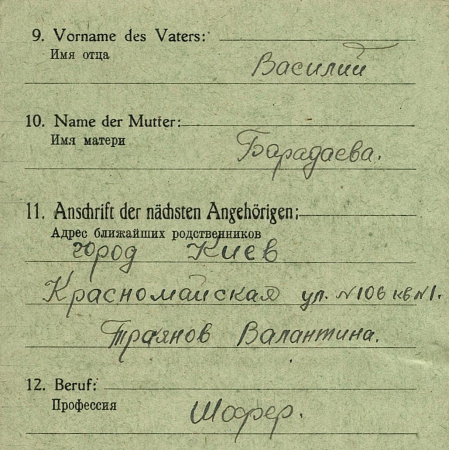 9. Vorname des Vaters:
Имя отца
Василий
10. Name der Mutter:
Имя матери
Барадаева.
11. Anschrift der nächsten Angehörigen:
Адрес ближайших родственников
город Киев
Красномайская ул. №106 кв №1.
Траянов Валантина.
12. Beruf:
Профессия
Шофер.